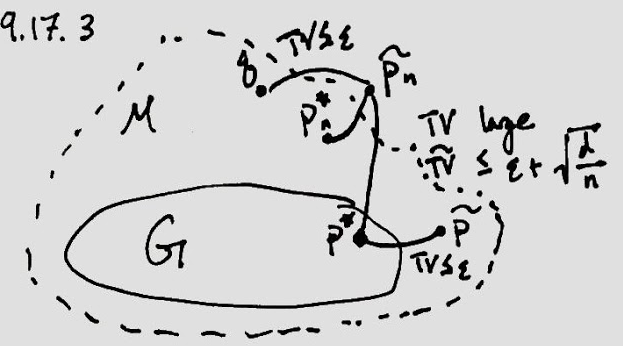 9.17.3
TV≤ε
q
p̃ₙ
p*ₙ
M
TV large
T̃V ≤ ε + √(d/n)
G
p*
p̃
TV≤ε